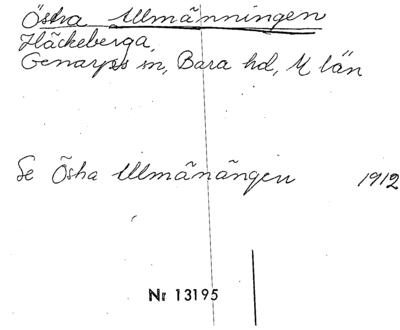 Östra Ullmänningen
Häckeberga,
Genarps sn, Bara hd, M län
Se Östra Ullmänängen 1912
Nr 13195